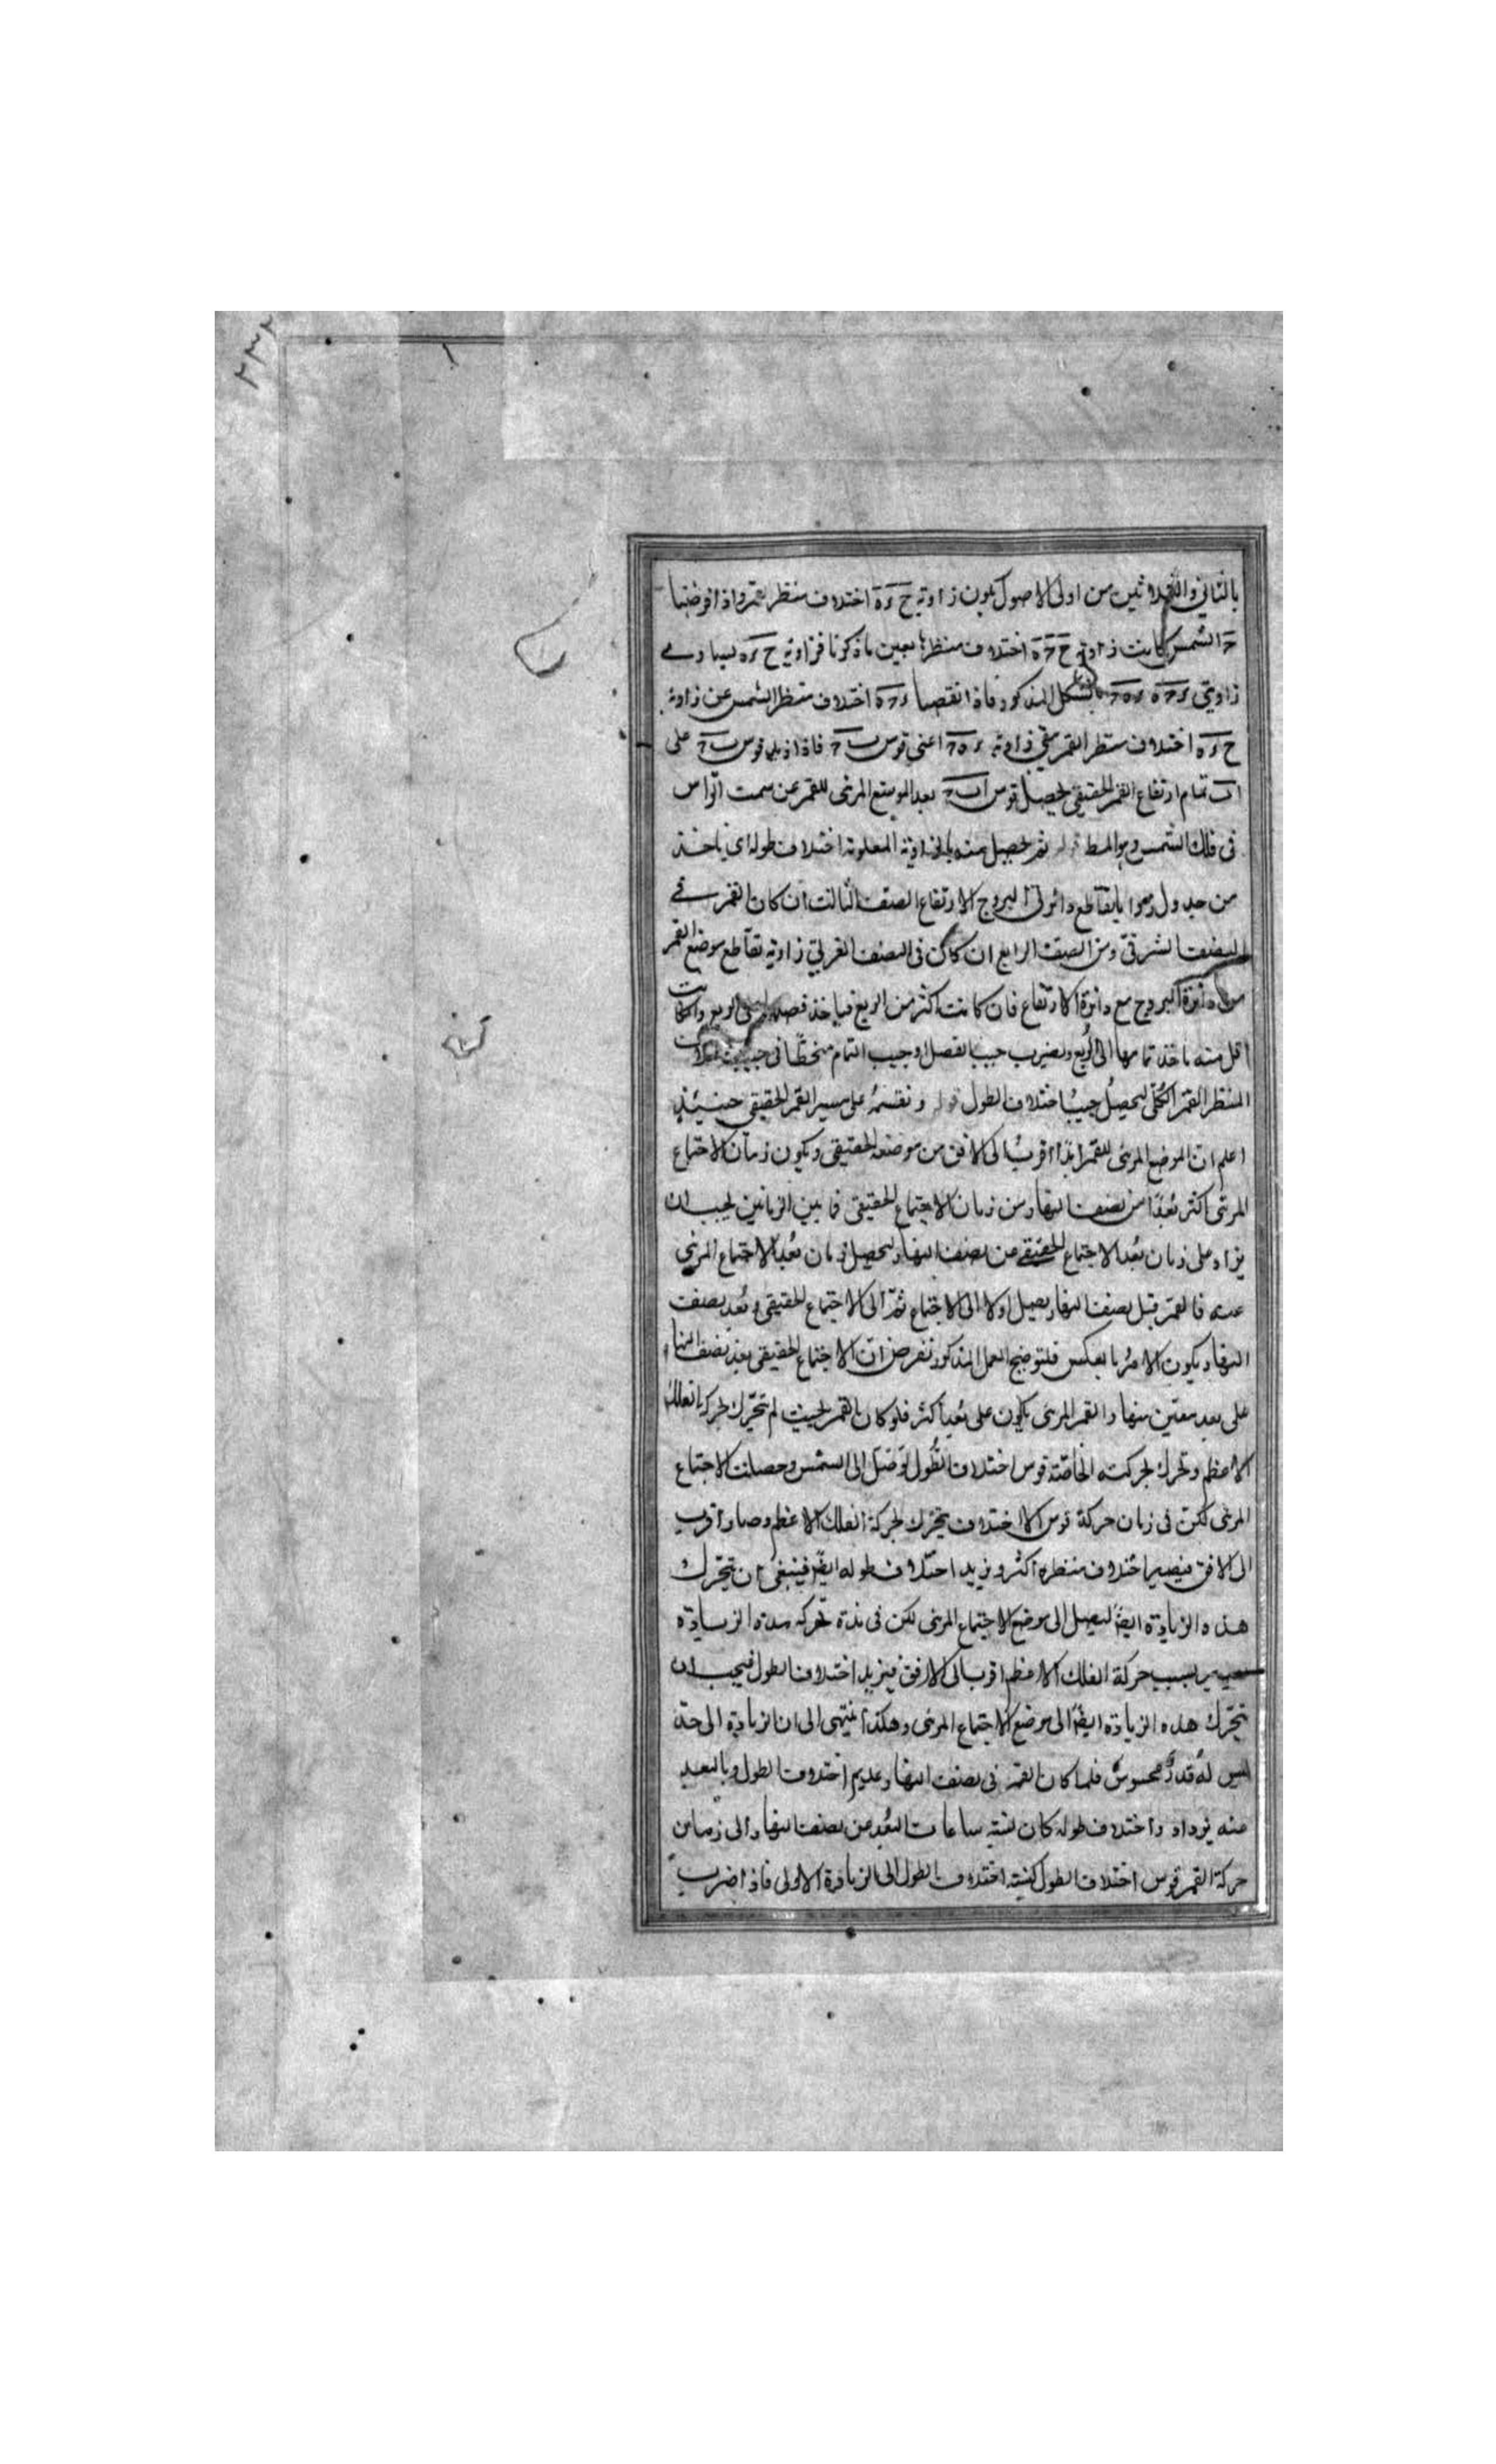 ٢٣٢
بالثاني والثلاثين من اولى الاصول يكون زاوية ح ر ه اختلاف منظر القمر واذا فرضنا
ح الشمس كانت زاوية ح ح ه اختلاف منظرها بعين ما ذكرنا فزاوية ح ر ه يساوي
زاويتي بالشكل المذكور فاذا نقصنا اختلاف منظر الشمس عن زاوية
ح ر ه اختلاف منظر القمر بقي زاوية اعني قوس فاذا زيد قوس على
اب تمام ارتفاع القمر الحقيقي يحصل قوس بعد الموضع المرئي للقمر عن سمت الراس
في فلك الشمس وهو المط قوله ثم يحصل منه بالزاوية المعلومة اختلاف طوله اي ياخذ
من جدول زوايا تقاطع دائرتي البروج الارتفاع الصف الثالث ان كان القمر في
النصف الشرقي ومن الصف الرابع ان كان في النصف الغربي زاوية تقاطع موضع القمر
من دائرة البروج مع دائرة الارتفاع فان كانت اكثر من الربع فياخذ فضله على الربع وان كانت
اقل منه ياخذ تمامها الى الربع ويضرب جيب الفضل او جيب التمام منحطا في جيب اختلاف
المنظر القمر الكلي ليحصل جيب اختلاف الطول قوله ونقسمه على مسير القمر الحقيقي حينئذ
اعلم ان الموضع المرئي للقمر ابدا اقرب الى الافق من موضعه الحقيقي ويكون زمان الاجتماع
المرئي اكثر بعدا من نصف النهار من زمان الاجتماع الحقيقي فما بين الزمانين يجب ان
يزاد على زمان بعد الاجتماع الحقيقي عن نصف النهار ليحصل زمان بعد الاجتماع المرئي
عنه فالقمر قبل نصف النهار يصل اولا الى الاجتماع ثم الى الاجتماع الحقيقي وبعد نصف
النهار يكون الامر بالعكس فلتوضيح العمل المذكور نفرض ان الاجتماع الحقيقي بعد نصف النهار
على بعد معين منها والقمر المرئي يكون على بعد اكثر فلو كان القمر بحيث لم يتحرك بحركة الفلك
الاعظم وتحرك بحركته الخاصة قوس اختلاف الطول لوصل الى الشمس وحصلت الاجتماع
المرئي لكن في زمان حركة قوس الاختلاف يتحرك بحركة الفلك الاعظم وصار اقرب
الى الافق فيصير اختلاف منظره اكثر ويزيد اختلاف طوله ايضا فينبغي ان يتحرك
هذه الزيادة ايضا ليصل الى موضع الاجتماع المرئي لكن في مدة تحركه هذه الزيادة
يصير بسبب حركة الفلك الاعظم اقرب الى الافق فيزيد اختلاف الطول فيجب ان
يتحرك هذه الزيادة ايضا الى موضع الاجتماع المرئي وهكذا ينتهي الى ان الزيادة الى حد
ليس له قدر محسوس فلما كان القمر في نصف النهار عديم اختلاف الطول وبالبعد
منه يزداد واختلاف طوله كان نسبة ساعات البعد من نصف النهار الى زمان
حركة القمر قوس اختلاف الطول كنسبة اختلاف الطول الى الزيادة الاولى فاذا ضرب